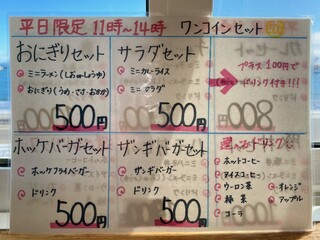 平日限定 11時〜14時 ワンコインセット
おにぎりセット
ミニラーメン(しおorしょうゆ)
おにぎり(うめ・さけ・おかか)
500円
サラダセット
ミニカレーライス
ミニサラダ
500円
プラス100円で
ドリンク付き!!!
ホッケバーガーセット
ホッケフライバーガー
ドリンク
500円
ザンギバーガーセット
ザンギバーガー
ドリンク
500円
選べるドリンク
ホットコーヒー
アイスコーヒー
ウーロン茶
緑茶
コーラ
オレンジ
アップル